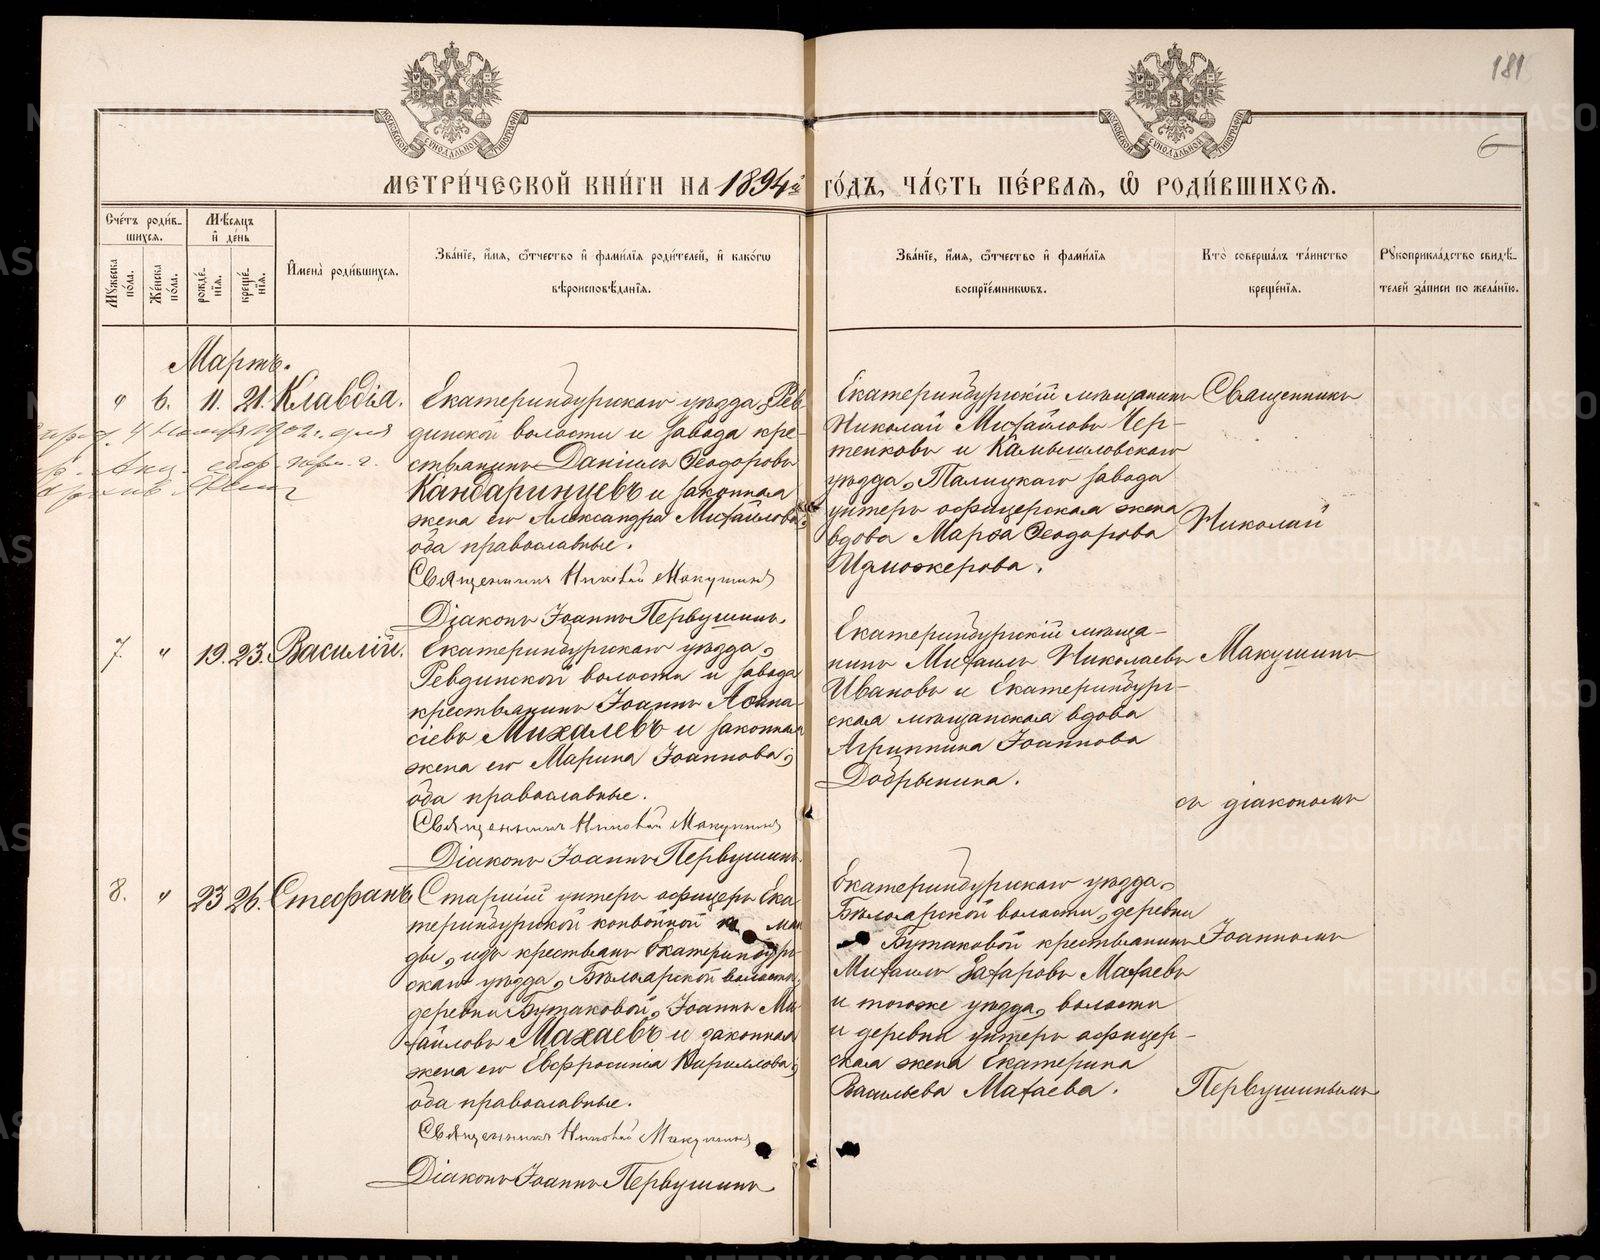 181
6
МЕТРИ́ЧЕСКОЙ КНИ́ГИ НА 1894й ГО́ДЪ, ЧА́СТЬ ПЕ́РВАЯ, Ѡ РОДИ́ВШИХСЯ.
Сче́тъ роди́в-
шихся.
Мѣ́сяцъ
и҆ де́нь
Му́жеска по́ла.
Же́нска по́ла.
рожде́-
нїя.
креще́-
нїя.
И҆мена̀ роди́вшихся.
Зва́нїе, и҆́мя, ѻ҆́тчество и҆ фами́лїя роди́телей, и҆ како́гѡ
вѣроисповѣ́данїя.
Зва́нїе, и҆́мя, ѻ҆́тчество и҆ фами́лїя
воспрїе́мникѡвъ.
Кто̀ соверша́лъ та́инство
креще́нїя.
Рꙋкоприкла́дство свидѣ́-
телей за́писи по жела́нїю.
Мартъ.
" 6. 11. 21. Клавдія.
Екатеринбургскаго уѣзда, Рев-
динской волости и завода кре-
стьянинъ Даніилъ Ѳеодоровъ
Кандаринцевъ и законная
жена его Александра Михайлова;
оба православные.
Священникъ Николай Макушинъ
Діаконъ Іоаннъ Первушинъ.
Екатеринбургскій мѣщанинъ
Николай Михайловъ Чер-
тенковъ и Камышловскаго
уѣзда, Талицкаго завода
унтеръ офицерская жена
вдова Марѳа Ѳеодорова
Изможерова.
Священникъ
Николай
4 1902 г.
7. " 19. 23. Василій.
Екатеринбургскаго уѣзда,
Ревдинской волости и завода
крестьянинъ Іоаннъ Аѳана-
сіевъ Михалевъ и законная
жена его Марина Іоаннова;
оба православные.
Священникъ Николай Макушинъ
Діаконъ Іоаннъ Первушинъ
Екатеринбургскій мѣща-
нинъ Михаилъ Николаевъ
Ивановъ и Екатеринбург-
ская мѣщанская вдова
Агриппина Іоаннова
Добрынина.
Макушинъ
съ діакономъ
8. " 23 26. Стефанъ
Старшій унтеръ офицеръ Ека-
теринбургской конвойной ко ман-
ды, изъ крестьянъ Екатеринбург-
скаго уѣзда, Бѣлоярской волости,
деревни Бутаковой, Іоаннъ Ми-
хайловъ Махаевъ и законная
жена его Евфросинія Кириллова;
оба православные.
Священникъ Николай Макушинъ
Діаконъ Іоаннъ Первушинъ
Екатеринбургскаго уѣзда,
Бѣлоярской волости, деревни
Бутаковой крестьянинъ
Михаилъ Захаровъ Махаевъ
и тогоже уѣзда, волости
и деревни унтеръ офицер-
ская жена Екатерина
Васильева Махаева.
Іоанномъ
Первушинымъ